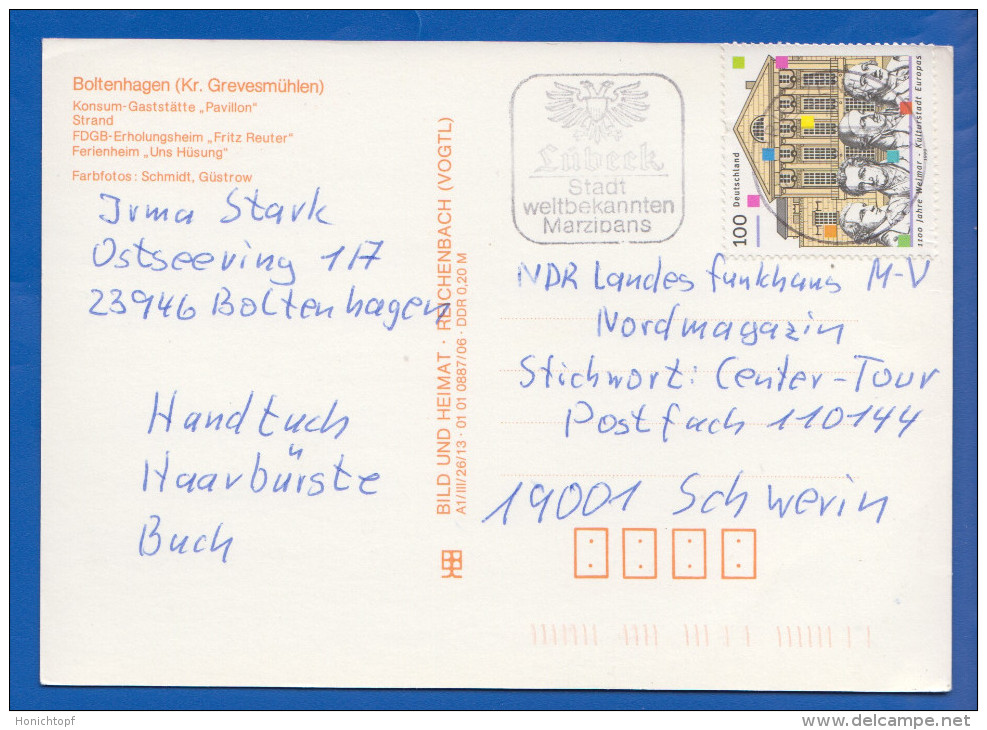 Boltenhagen (Kr. Grevesmühlen)
Konsum-Gaststätte „Pavillon“
Strand
FDGB-Erholungsheim „Fritz Reuter“
Ferienheim „Uns Hüsung“
Farbfotos: Schmidt, Güstrow
Irma Stark
Ostseering 117
23946 Boltenhagen
Handtuch
Haarbürste
Buch
BILD UND HEIMAT · REICHENBACH (VOGTL)
A1/III/26/13 · 01 01 0887/06 · DDR 0,20 M
Lübeck
Stadt
weltbekannten
Marzipans
100 Deutschland
1100 Jahre Weimar - Kulturstadt Europas
NDR Landesfunkhaus M-V
Nordmagazin
Stichwort: Center-Tour
Postfach 110144
19001 Schwerin
Honichtopf
www.delcampe.net